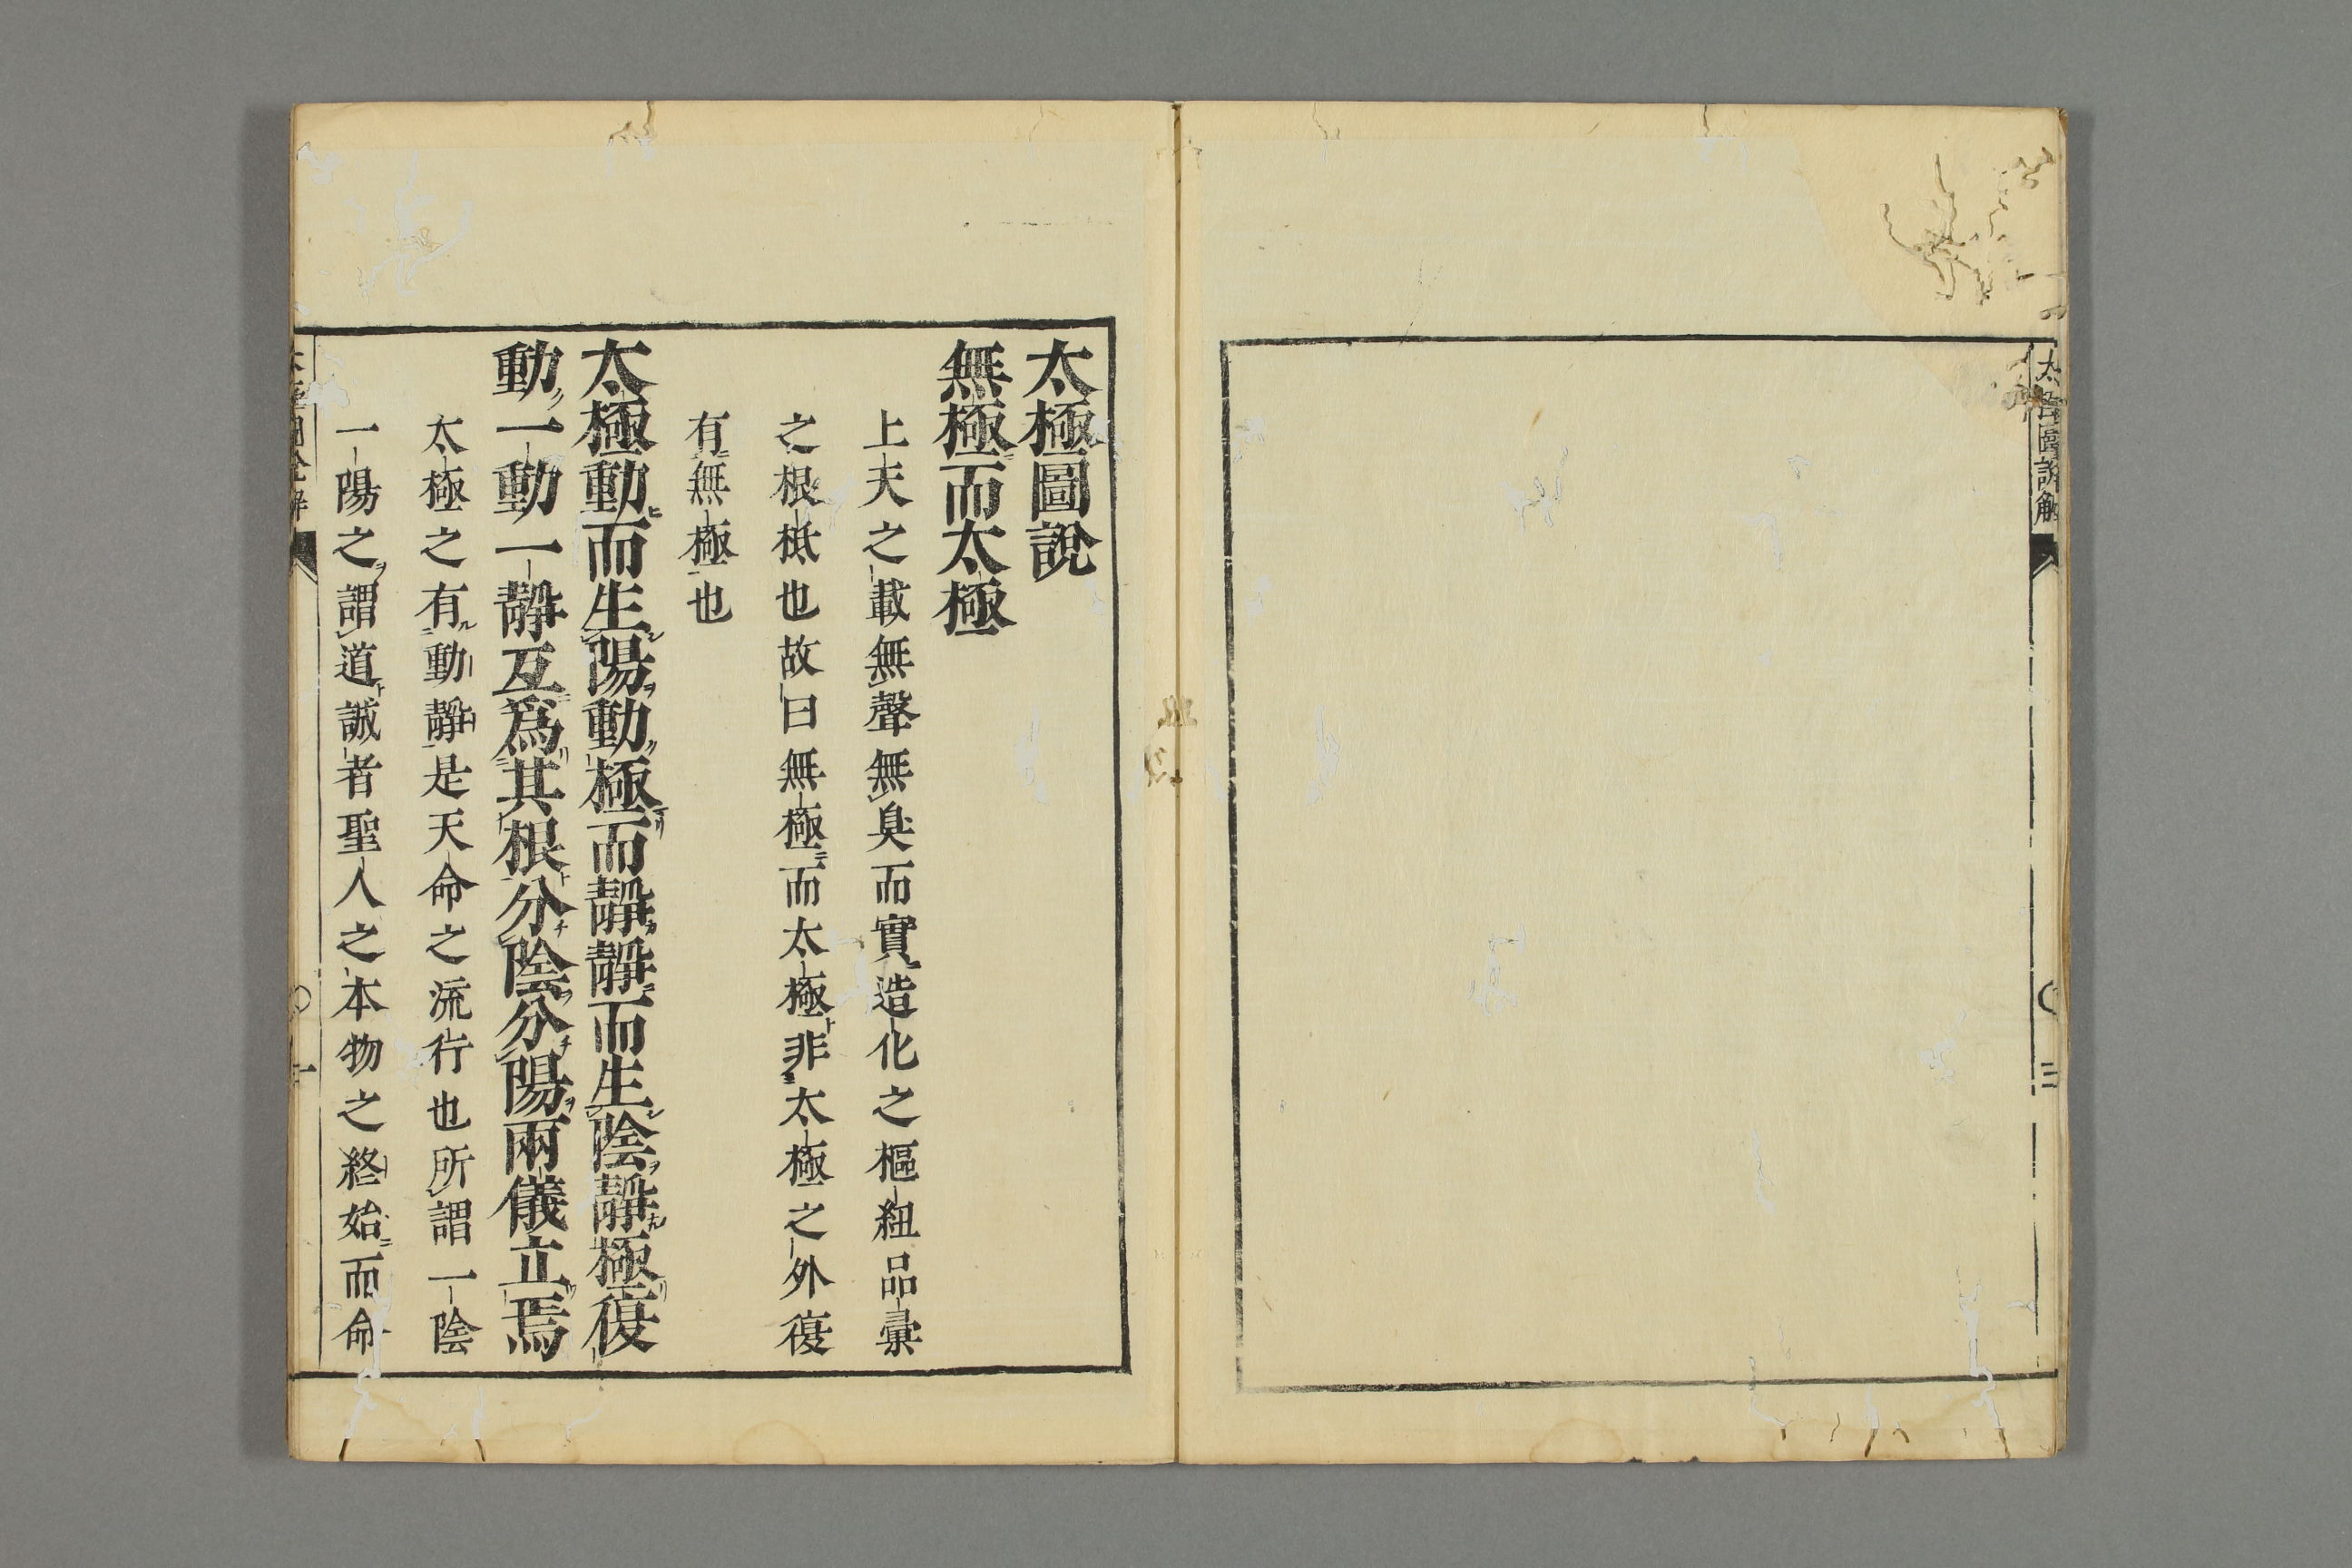 太極圖說解
〇
三
太極圖說
無極而太極
上天之載無聲無臭而實造化之樞紐品彙
之根柢也故曰無極而太極非太極之外復
有無極也
太極動而生陽動極而靜靜而生陰靜極復
動一動一靜互爲其根分陰分陽兩儀立焉
太極之有動靜是天命之流行也所謂一陰
一陽之謂道誠者聖人之本物之終始而命